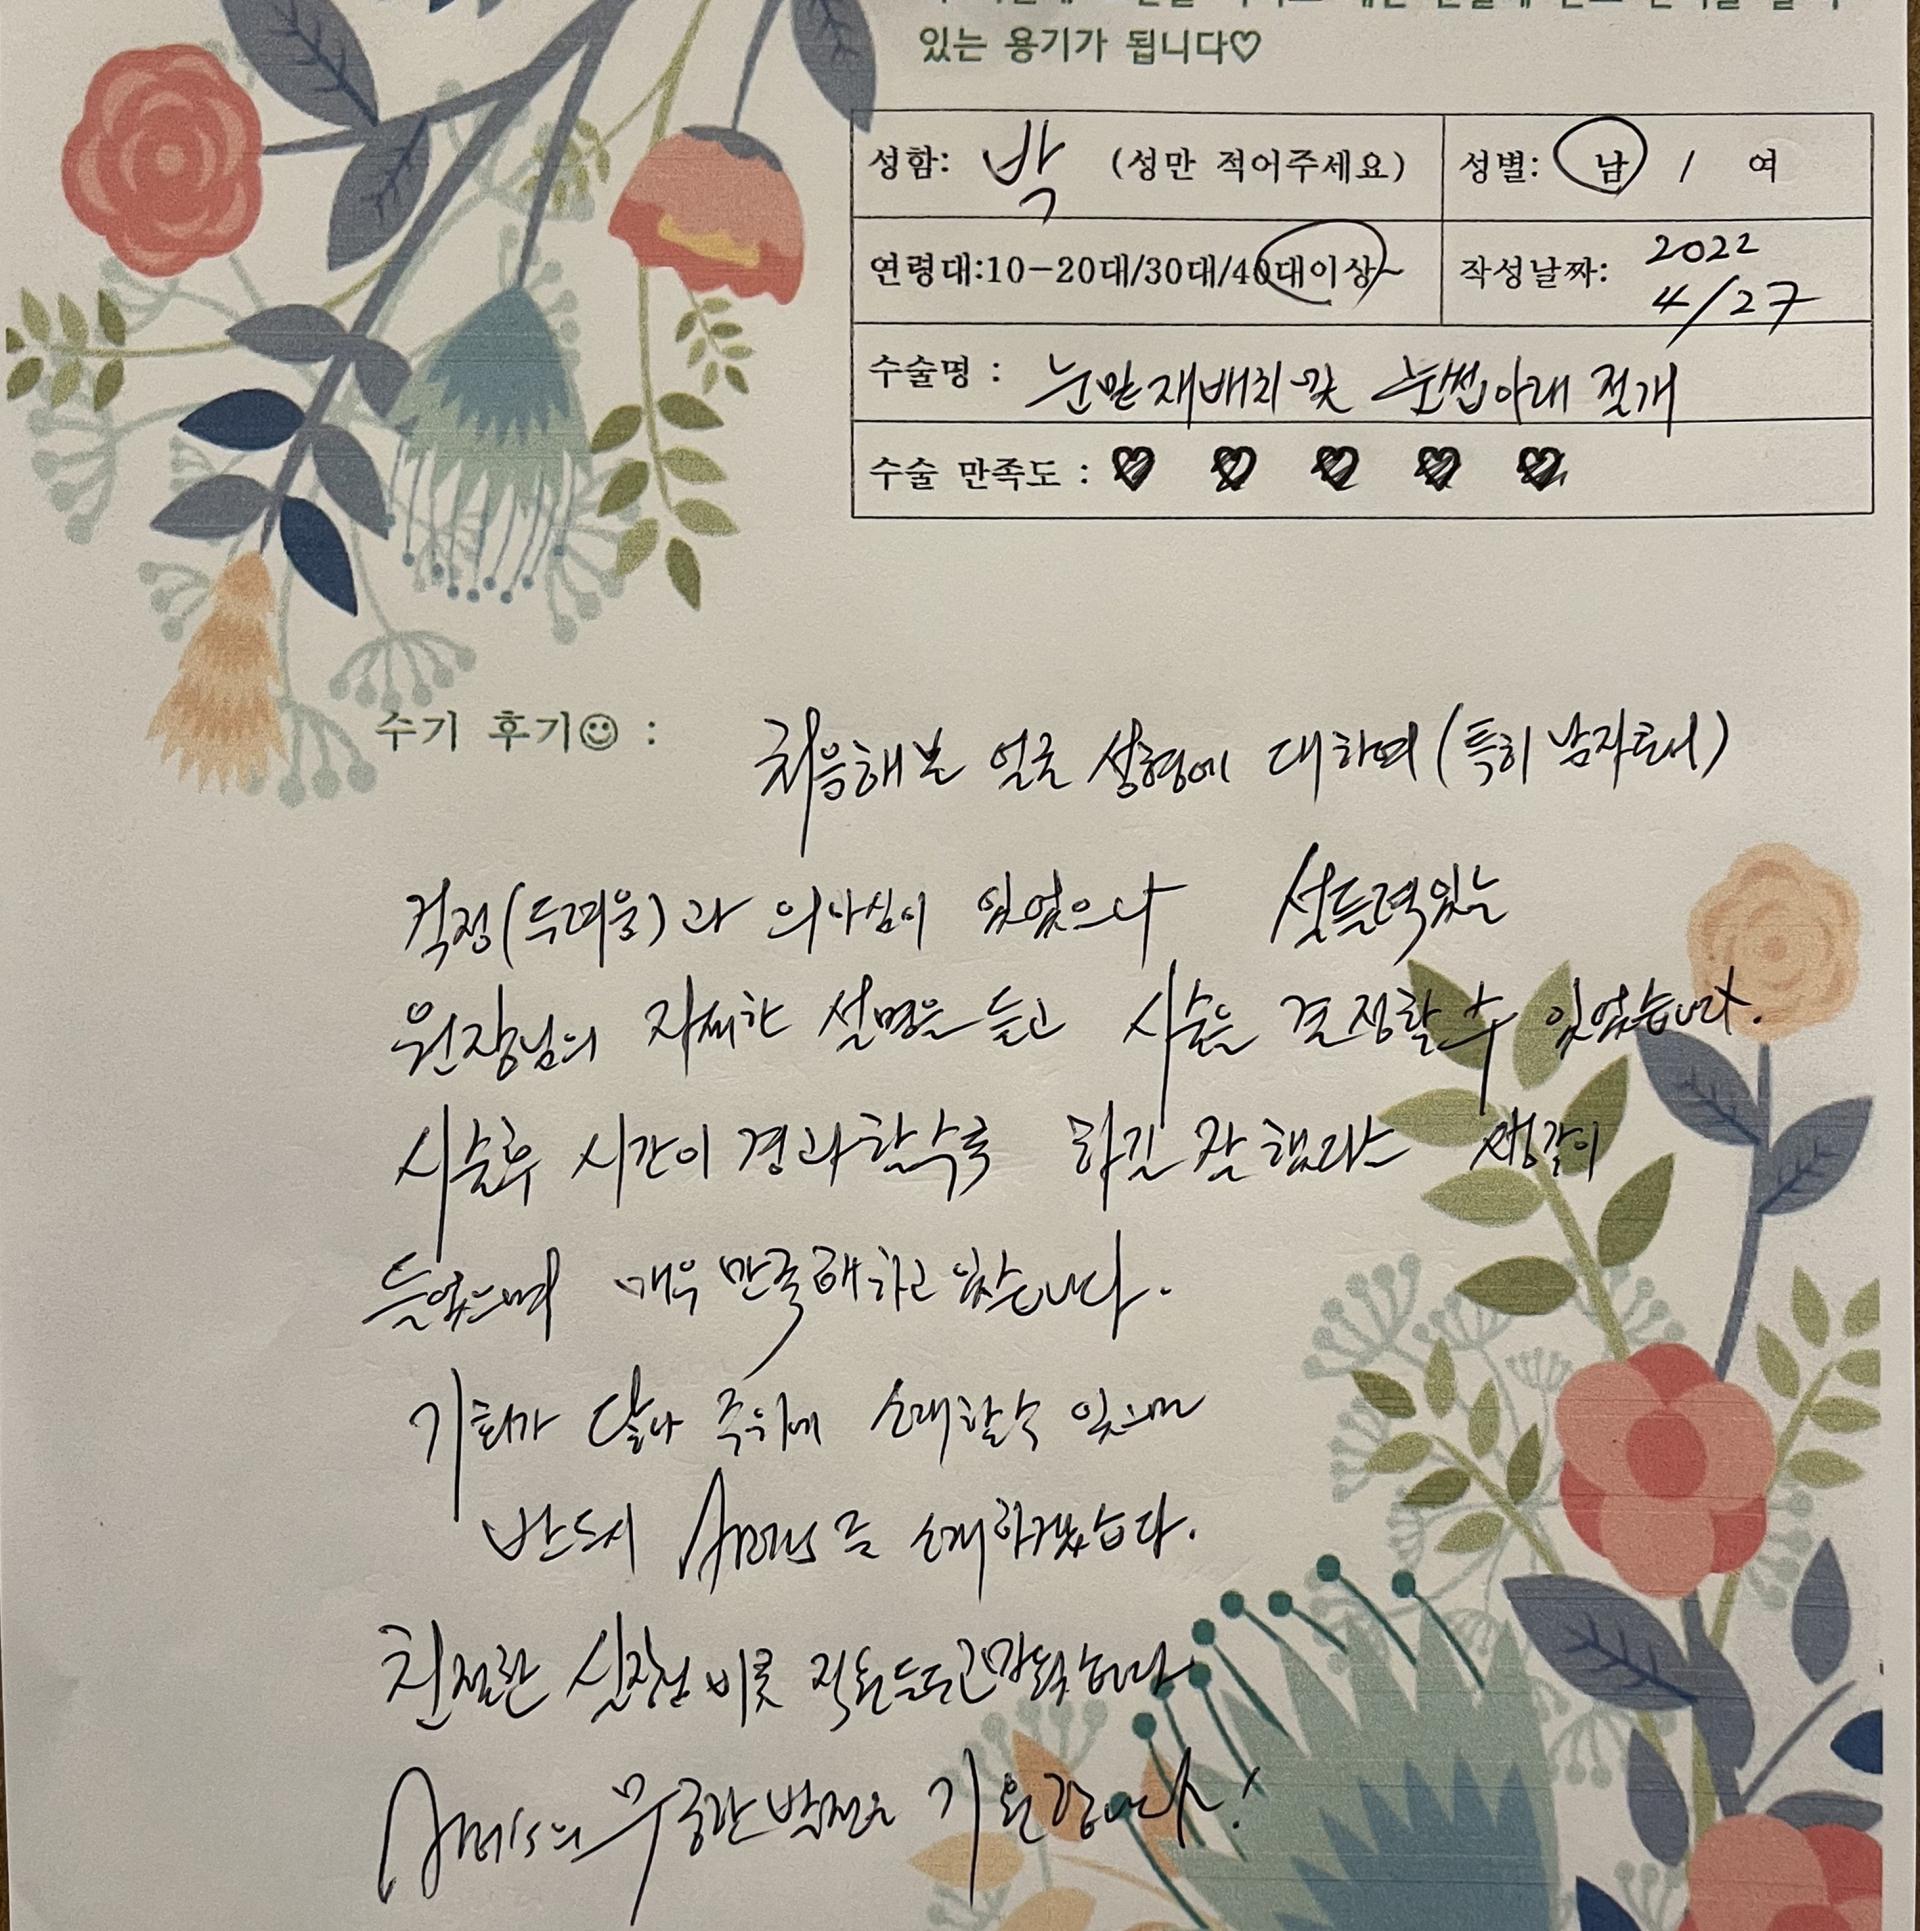 있는 용기가 됩니다♡
성함: 박 (성만 적어주세요) 성별: 남 / 여
연령대:10-20대/30대/40대이상~ 작성날짜: 2022 4/27
수술명 : 눈밑재배치 및 눈썹아래 절개
수술 만족도 : ♥ ♥ ♥ ♥ ♥
수기 후기☺ : 처음해본 얼굴 성형에 대하여 (특히 남자로서)
걱정(두려움)과 의아심이 있었으나 설득력있는
원장님의 자세한 설명을 듣고 시술을 결정할 수 있었습니다.
시술후 시간이 경과할수록 하길 잘 했다는 생각이
들었으며 매우 만족해하고 있습니다.
기회가 닿아 주위에 소개할수 있으면
반드시 를 소개하겠습니다.
친절한 실장님 비롯 직원분들 고마웠습니다
무궁한 발전을 기원합니다!